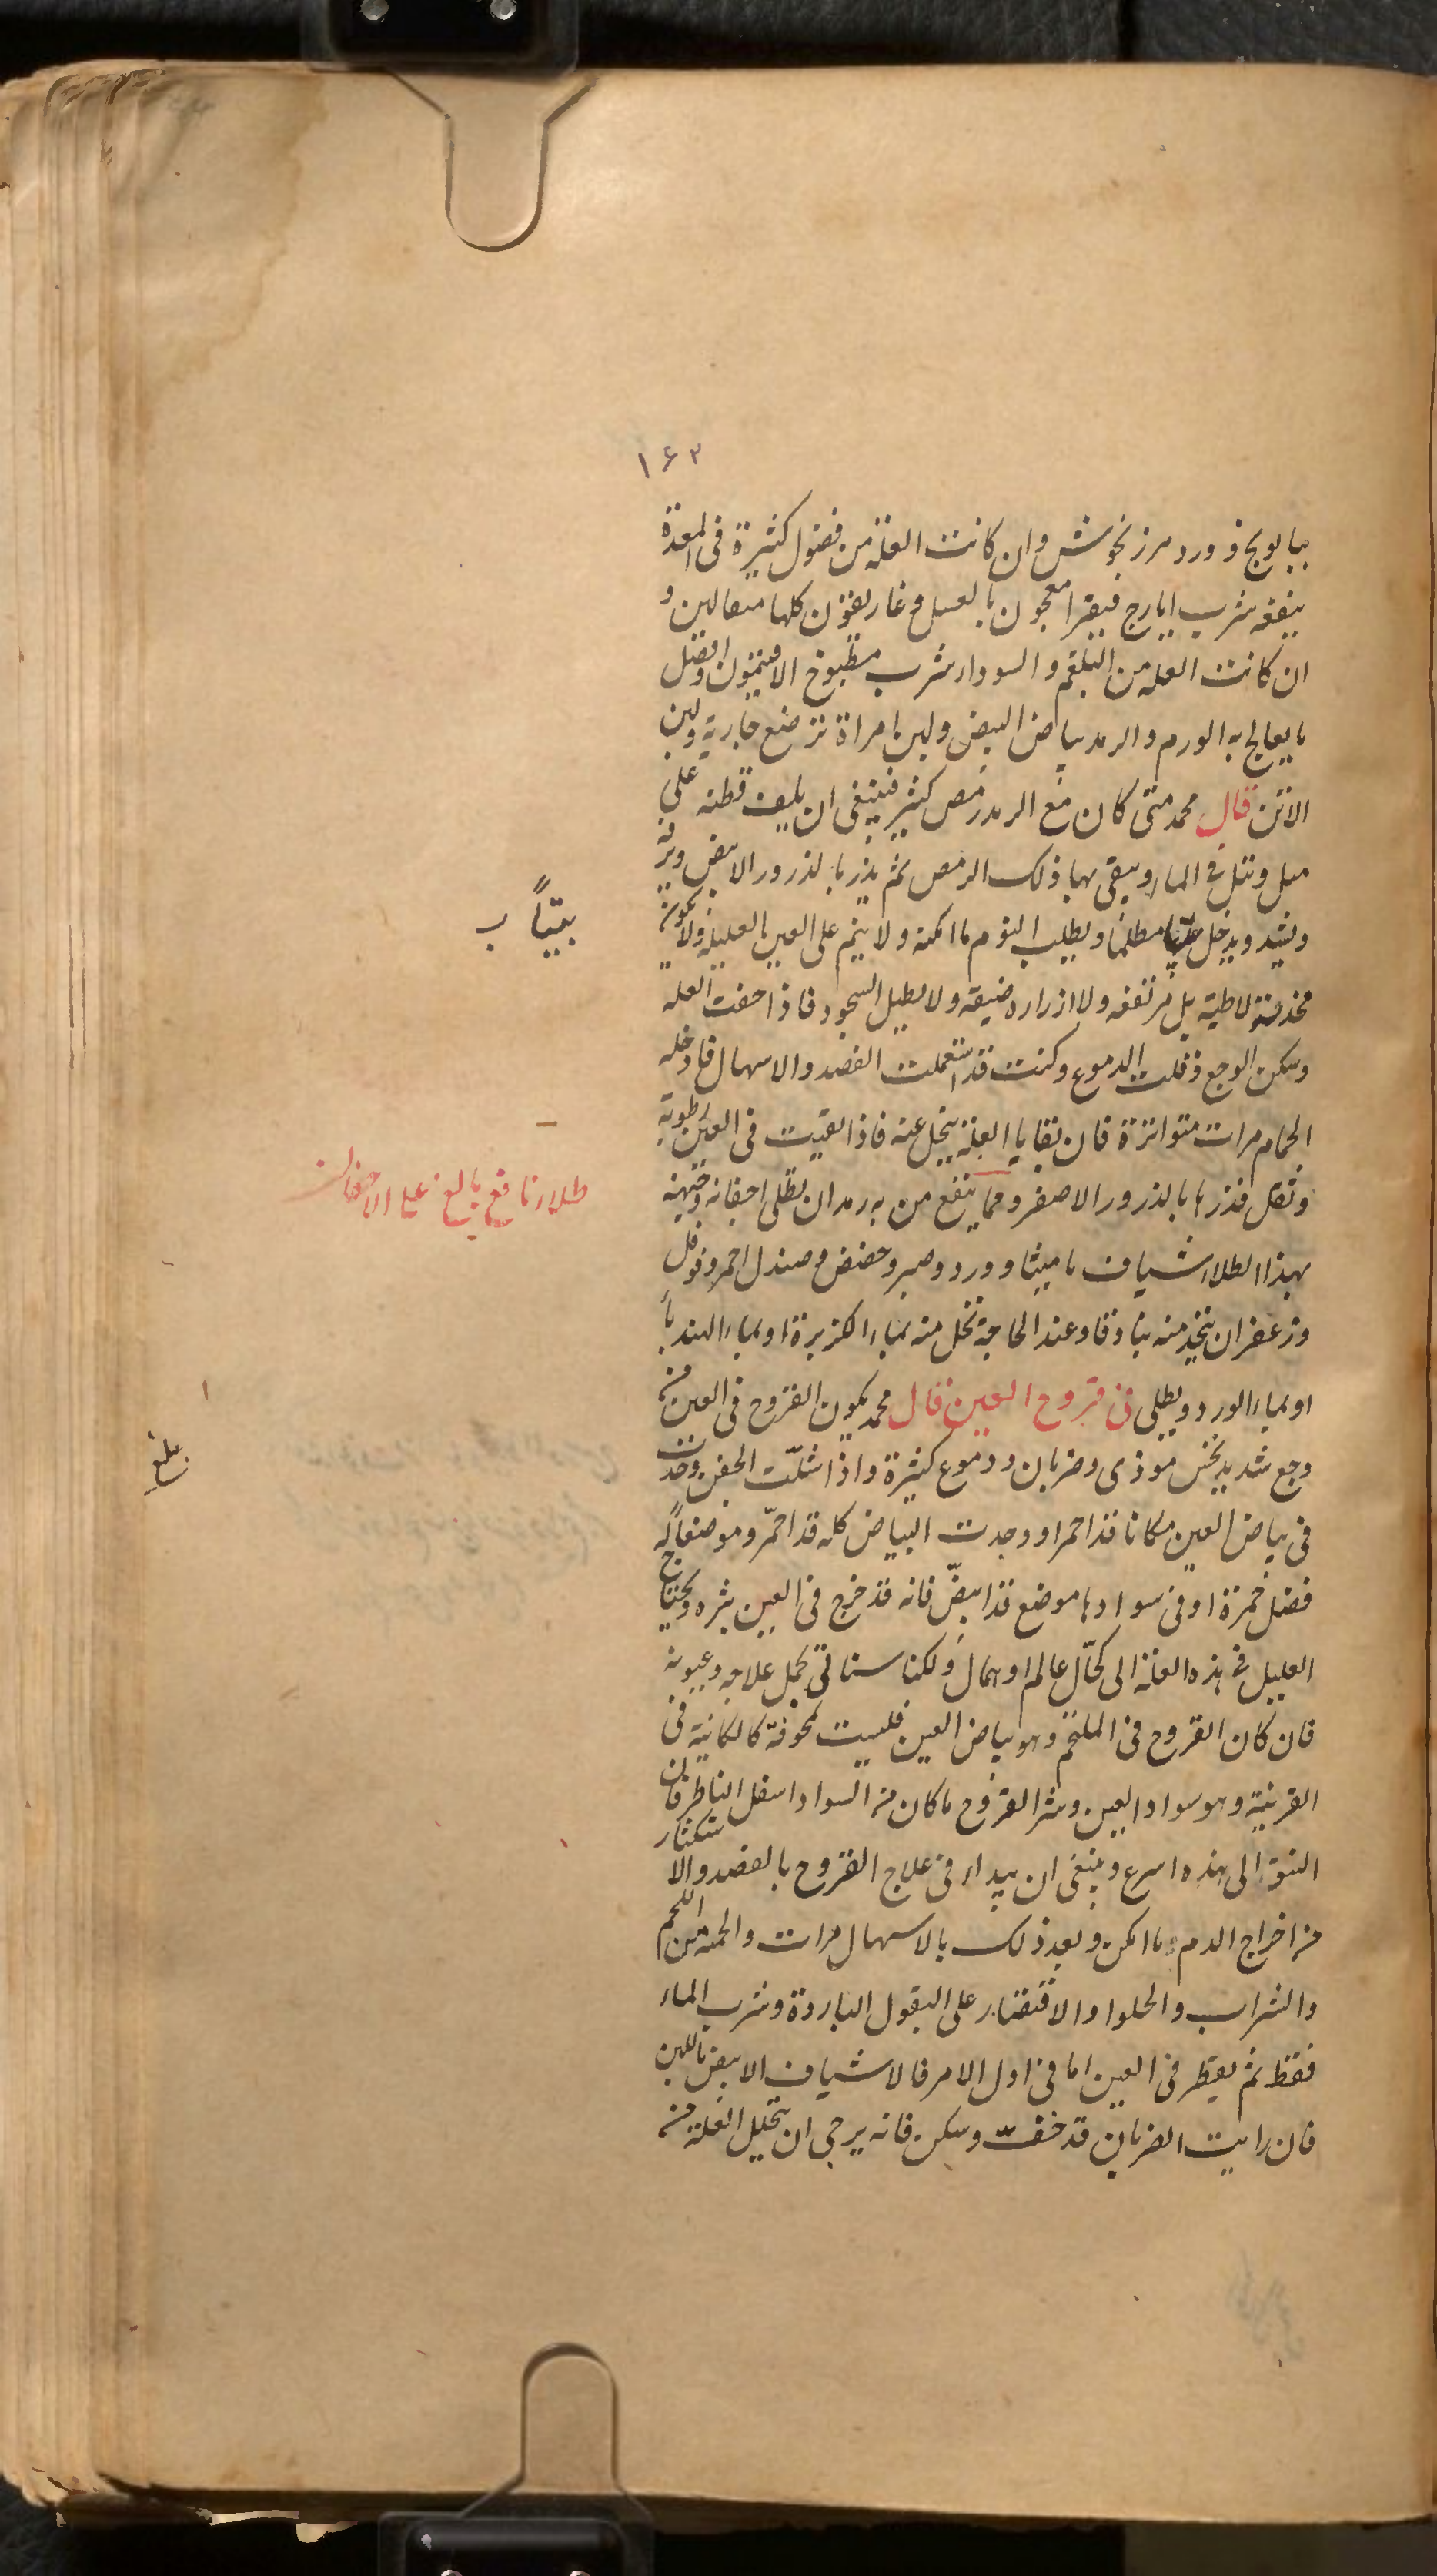 ١٦٣
ببابونج وورد مرزنجوش وان كانت العلة من فضول كثيرة فى المعدة
ينفعه شرب ايارج فيقرا معجون بالعسل وغاريقون كلها مثقالين و
ان كانت العله من البلغم والسوداء شرب مطبوخ الافتيمون وافضل
ما يعالج به الورم والرمد بياض البيض ولبن امراة ترضع جارية ولبن
الاتن قال محمد متى كان مع الرمد رمص كثير فينبغى ان يلف قطنه على
ميل وتبل فى الماء وينقى بها ذلك الرمص ثم يذر بالذرور الابيض
ويشد ويدخل بيتا مظلما ويطلب النوم ما امكنه ولا ينم على العين العليلة ولا يكون
مخدته لاطية بل مرتفعه ولا ازراره ضيقه ولا يطيل السجود فاذا خفت العله
وسكن الوجع وقلت الدموع وكنت قد استعملت الفصد والاسهال فادخله
الحمام مرات متواترة فان بقايا العلة ينحل عنه فاذا بقيت فى العين رطوبة
وثقل فذرها بالذرور الاصفر ومما ينفع من به رمدان يطلى اجفانه وجبهته
بهذا الطلاء شياف ماميثا وورد وصبر وحضض وصندل احمر وفوفل
وزعفران يتخذ منه بنادقا وعند الحاجة تحل منه بماء الكزبرة او بماء الهندبا
او بماء الورد ويطلى فى قروح العين قال محمد يكون القروح فى العين من
وجع شديد نخس مؤذى وضربان ودموع كثيرة واذا شلت الجفن وجدت
فى بياض العين مكانا قد احمر او وجدت البياض كله قد احمر وموضعا له
فضل حمرة او فى سوادها موضع قد ابيض فانه قد خرج فى العين بثره ويحتاج
العليل فى هذه العلة الى كحال عالم او بمال ولكنا سناتى بجمل علاجه وعيونه
فان كان القروح فى الملتحم وهو بياض العين فليست مخوفة كالكائنة فى
القرنية وهو سواد العين وشر القروح ما كان من السواد اسفل الناظر فان
النتو الى هذه اسرع وينبغى ان يبداء فى علاج القروح بالفصد والا
ستكثار
من اخراج الدم ما امكن وبعد ذلك بالاسهال مرات والحمية من اللحم
والشراب والحلوا والاقتصار على البقول الباردة وشرب الماء
فقط ثم يقطر فى العين اما فى اول الامر فالاشياف الابيض باللبن
فان رايت الضربان قد خفت وسكن فانه يرجى ان يتحليل العلة من
بيتاً ب
طلاء نافع بالغ على الاجفان
بلغ